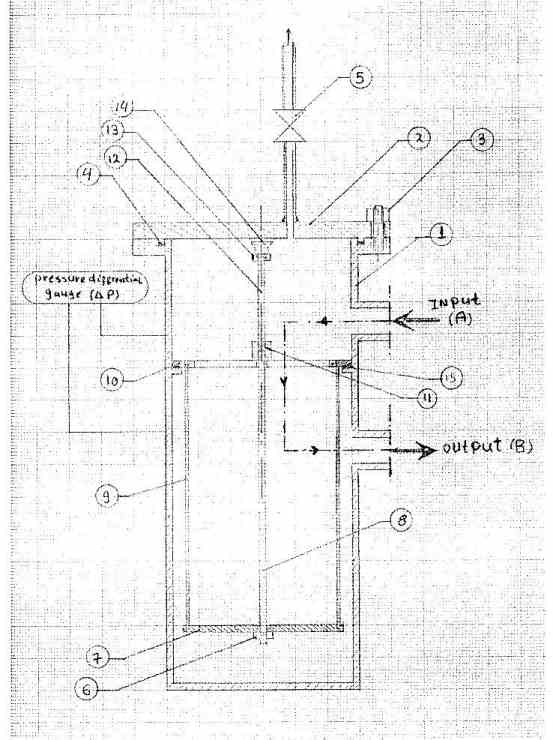 5
14
13
2
3
12
4
1
pressure differential
gauge (ΔP)
INPUT
(A)
10
15
11
OUTPUT (B)
9
8
7
6